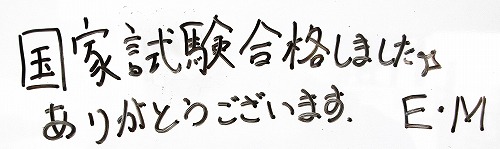 国家試験合格しました☆
ありがとうございます. E・M